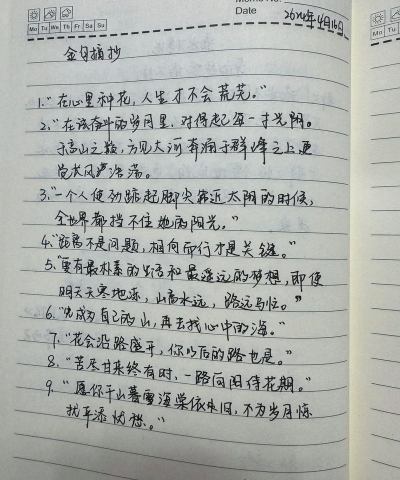 Memo No.
Mo Tu We Th Fr Sa Su
Date 2024年4月16日
金句摘抄
1.“在心里种花，人生才不会荒芜。”
2.“在该奋斗的岁月里，对得起每一寸光阴。
于高山之巅，方见大河奔涌于群峰之上更
觉长风浩荡。
3.“一个人使劲踮起脚尖靠近太阳的时候，
全世界都挡不住她的阳光。”
4.“距离不是问题，相向而行才是关键。”
5.“要有最朴素的生活和最遥远的梦想，即使
明天天寒地冻，山高水远，路远马亡。”
6.“先成为自己的山，再去找心中的海。”
7.“花会沿路盛开，你以后的路也是。”
8.“苦尽甘来终有时，一路向阳待花期。”
9.“愿你千山暮雪海棠依旧，不为岁月惊
扰平添忧愁。”
Mo Tu